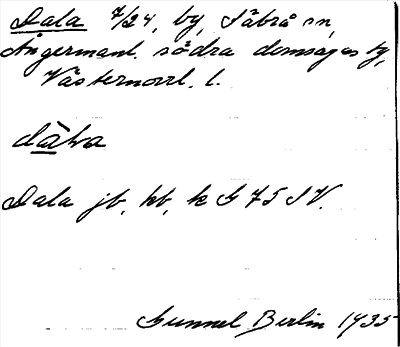 Dala 7/24, by, Säbrå sn,
Ångermanl. södra domsagas tg,
Västernorrl. l.
dàla
Dala jb, kb, k G 75 SV.
Gunnel Berlin 1935